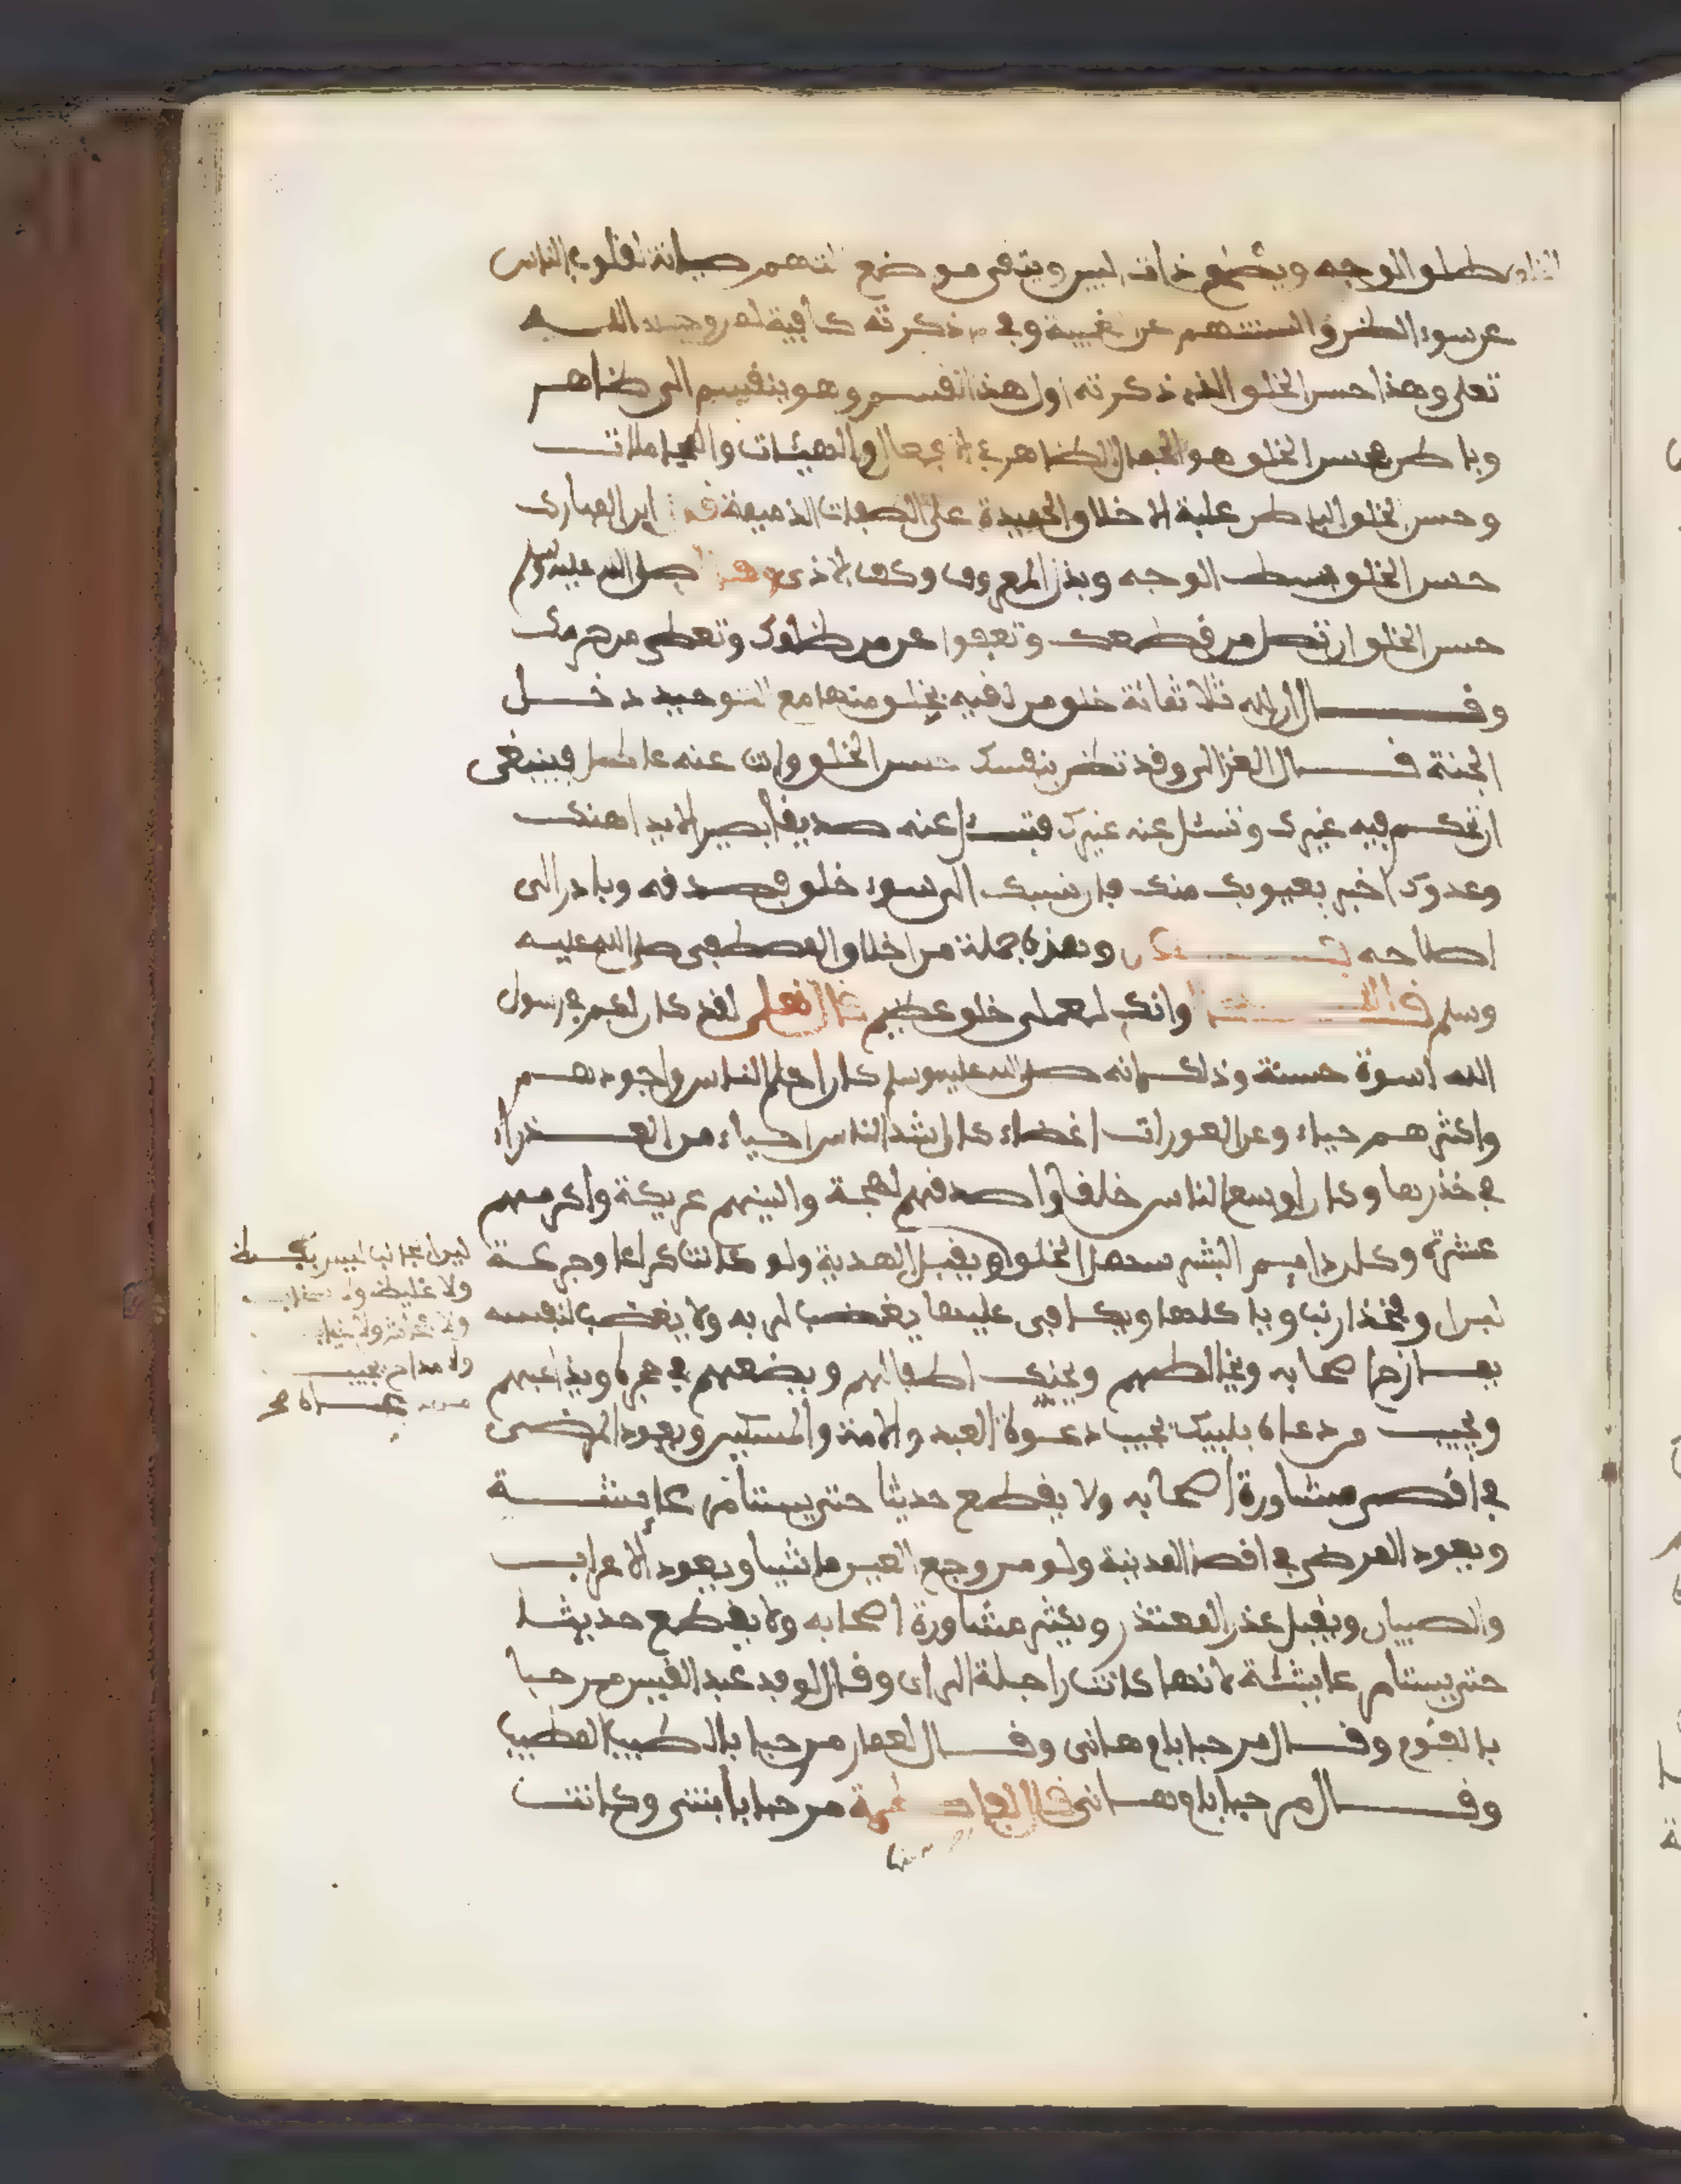 طلو الوجه ويصلح ذات البين ويتقى موضع التهم صيانة لقلوب الناس
عن سوء الظن والسنتهم عن الغيبة وفي ما ذكرته كافية لمن وفقه الله
تعلى وهذا حسن الخلق الذي ذكرته اول هذا القسم وهو ينقسم الى ظاهر
وباطن فحسن الخلق هو الجمال الظاهر في الافعال والهيئات والمعاملات
وحسن الخلق الباطن غلبة الاخلاق الحميدة على الصفات الذميمة قال ابن المبارك
حسن الخلق بسط الوجه وبذل المعروف وكف الاذى وقال صلى الله عليه وسلم
حسن الخلق ان تصل من قطعك وتعفوا عن من ظلمك وتعطى من حرمك
وقال ان لله ثلاثمائة خلق من لقيه بخلق منها مع التوحيد دخل
الجنة قال الغزالى وقد تظن بنفسك حسن الخلق وانت عنه عاطل فينبغى
ان تحكم فيه غيرك وتسئل عنه غيرك فتسئل عنه صديقا بصيرا لا يداهنك
وعدوك اخبر بعيوبك منك فان نسبك الى سوء خلق فصدقه وبادر الى
اصلاحه وهذه جملة من اخلاق المصطفى صلى الله عليه
وسلم قال الله وانك لعلى خلق عظيم قال تعلى لقد كان لكم في رسول
الله اسوة حسنة وذلك انه صلى الله عليه وسلم كان احلم الناس واجودهم
واكثرهم حياء وعن العورات اغضاء كان اشد الناس حياء من العذراء
في خذرها وكان اوسع الناس خلقا واصدقهم لهجة والينهم عريكة واكرمهم
عشرة وكان دايم البشر سهل الخلق ويقبل الهدية ولو كانت كراعا وجرعة
لبن او فخذ ارنب وياكلها ويكافى عليها يغضب لربه ولا يغضب لنفسه
يمازح اصحابه ويخالطهم ويحنك اطفالهم ويضعهم في حجره ويداعبهم
ويجيب من دعاه بلبيك يجيب دعوة العبد والامة والمسكين ويعود المرضى
في اقصى مشاورة اصحابه ولا يقطع حديثا حتى يستامر عايشة
ويعود المرضى في اقصا المدينة ولو من وجع العين ماشيا ويعود الاعراب
والصبيان ويقبل عذر المعتذر ويكثر مشاورة اصحابه ولا يقطع حديثا
حتى يستامر عايشة لانها كانت راجلة الراى وقال لوفد عبد القيس مرحبا
بالقوم وقال مرحبا بام هانى وقال لعمار مرحبا بالطيب المطيب
وقال مرحبا بام هانى قال لفاطمة مرحبا بابنتى وكانت
لين الجانب ليس بفظ
ولا غليظ ولا سخاب
ولا فحاش ولا عياب
ولا مداح يجيب
من دعاه صح